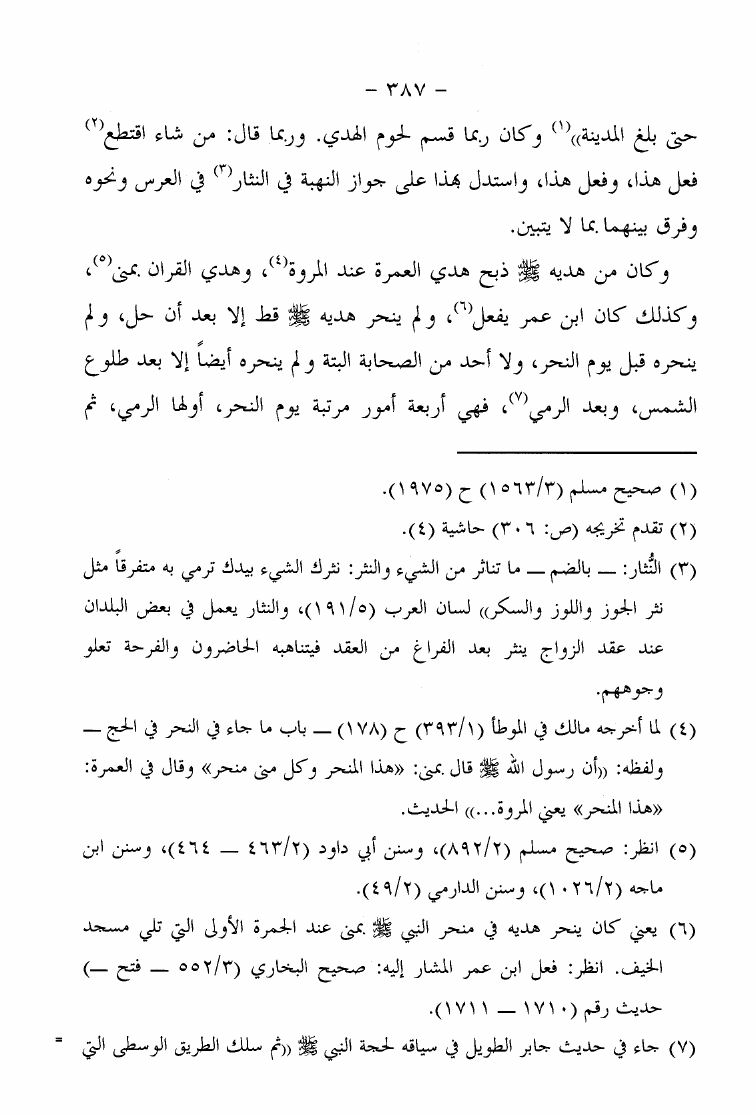 – ٣٨٧ –
حتى بلغ المدينة))(١) وكان ربما قسم لحوم الهدي. وربما قال: من شاء اقتطع(٢)
فعل هذا، وفعل هذا، واستدل بهذا على جواز النهبة في النثار(٣) في العرس ونحوه
وفرق بينهما بما لا يتبين.
وكان من هديه ﷺ ذبح هدي العمرة عند المروة(٤)، وهدي القران بمنى(٥)،
وكذلك كان ابن عمر يفعل(٦)، ولم ينحر هديه ﷺ قط إلا بعد أن حل، ولم
ينحره قبل يوم النحر، ولا أحد من الصحابة البتة ولم ينحره أيضاً إلا بعد طلوع
الشمس، وبعد الرمي(٧)، فهي أربعة أمور مرتبة يوم النحر، أولها الرمي، ثم
(١) صحيح مسلم (١٥٦٣/٣) ح (١٩٧٥).
(٢) تقدم تخريجه (ص: ٣٠٦) حاشية (٤).
(٣) النُّثار: — بالضم — ما تناثر من الشيء والنثر: نثرك الشيء بيدك ترمي به متفرقاً مثل
نثر الجوز واللوز والسكر)) لسان العرب (١٩١/٥)، والنثار يعمل في بعض البلدان
عند عقد الزواج ينثر بعد الفراغ من العقد فيتناهبه الحاضرون والفرحة تعلو
وجوههم.
(٤) لما أخرجه مالك في الموطأ (٣٩٣/١) ح (١٧٨) — باب ما جاء في النحر في الحج —
ولفظه: ((أن رسول الله ﷺ قال بمنى: «هذا المنحر وكل منى منحر» وقال في العمرة:
«هذا المنحر» يعني المروة...)) الحديث.
(٥) انظر: صحيح مسلم (٨٩٢/٢)، وسنن أبي داود (٤٦٣/٢ — ٤٦٤)، وسنن ابن
ماجه (١٠٢٦/٢)، وسنن الدارمي (٤٩/٢).
(٦) يعني كان ينحر هديه في منحر النبي ﷺ بمنى عند الجمرة الأولى التي تلي مسجد
الخيف. انظر: فعل ابن عمر المشار إليه: صحيح البخاري (٥٥٢/٣ — فتح —)
حديث رقم (١٧١٠ — ١٧١١).
(٧) جاء في حديث جابر الطويل في سياقه لحجة النبي ﷺ ((ثم سلك الطريق الوسطى التي =